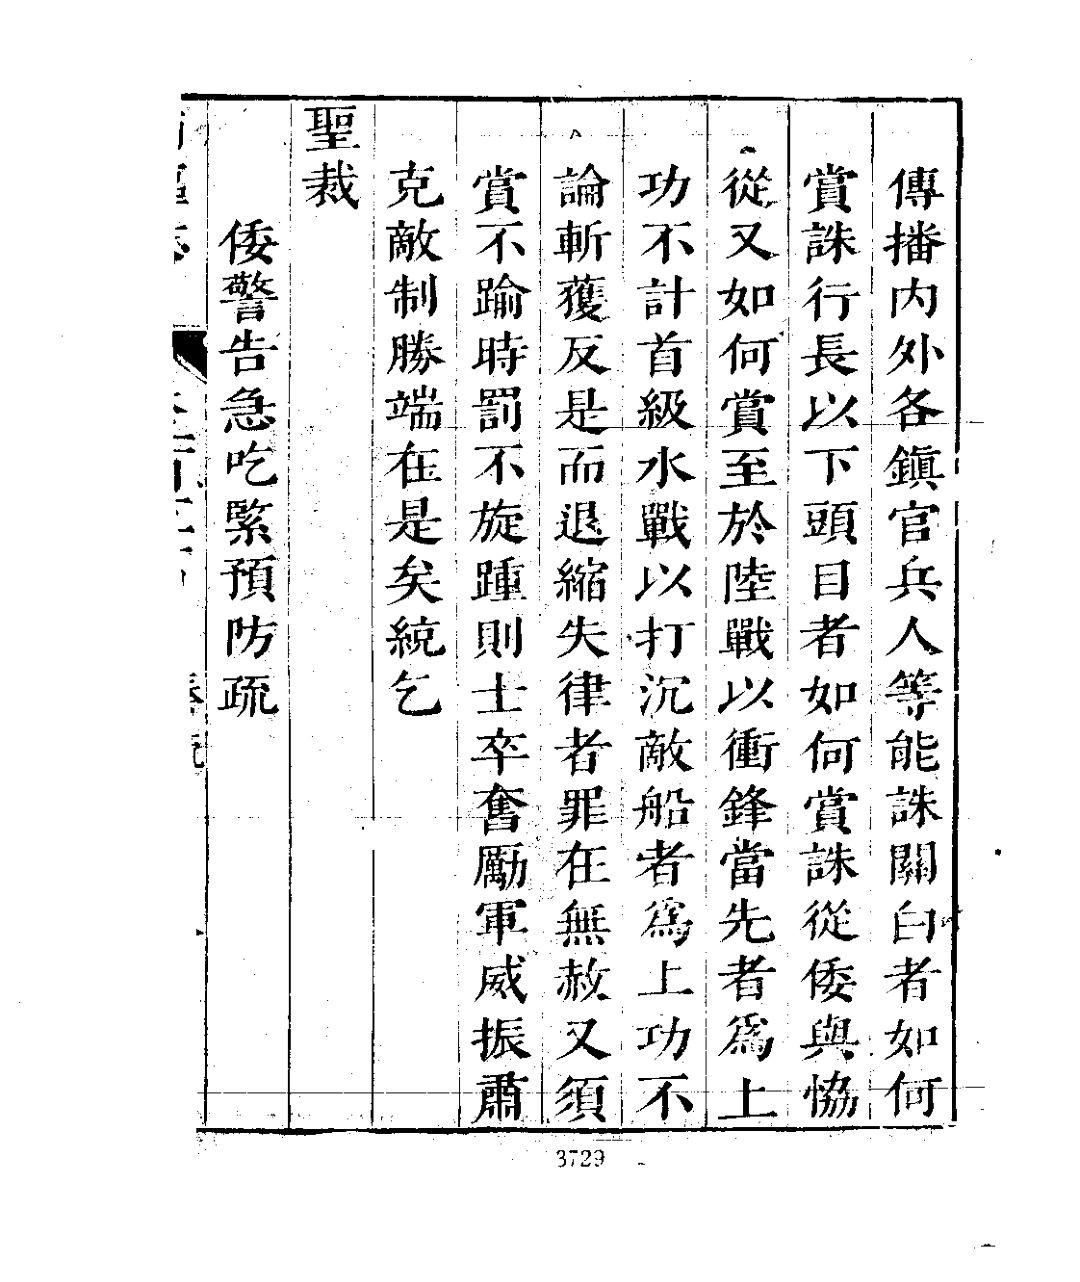 傳播内外各鎮官兵人等能誅關白者如何
賞誅行長以下頭目者如何賞誅從倭與恊
從又如何賞至於陸戰以衝鋒當先者爲上
功不計首級水戰以打沉敵船者爲上功不
論斬獲反是而退縮失律者罪在無赦又須
賞不踰時罰不旋踵則士卒奮勵軍威振肅
克敵制勝端在是矣統乞
聖裁
倭警告急吃緊預防疏
3729